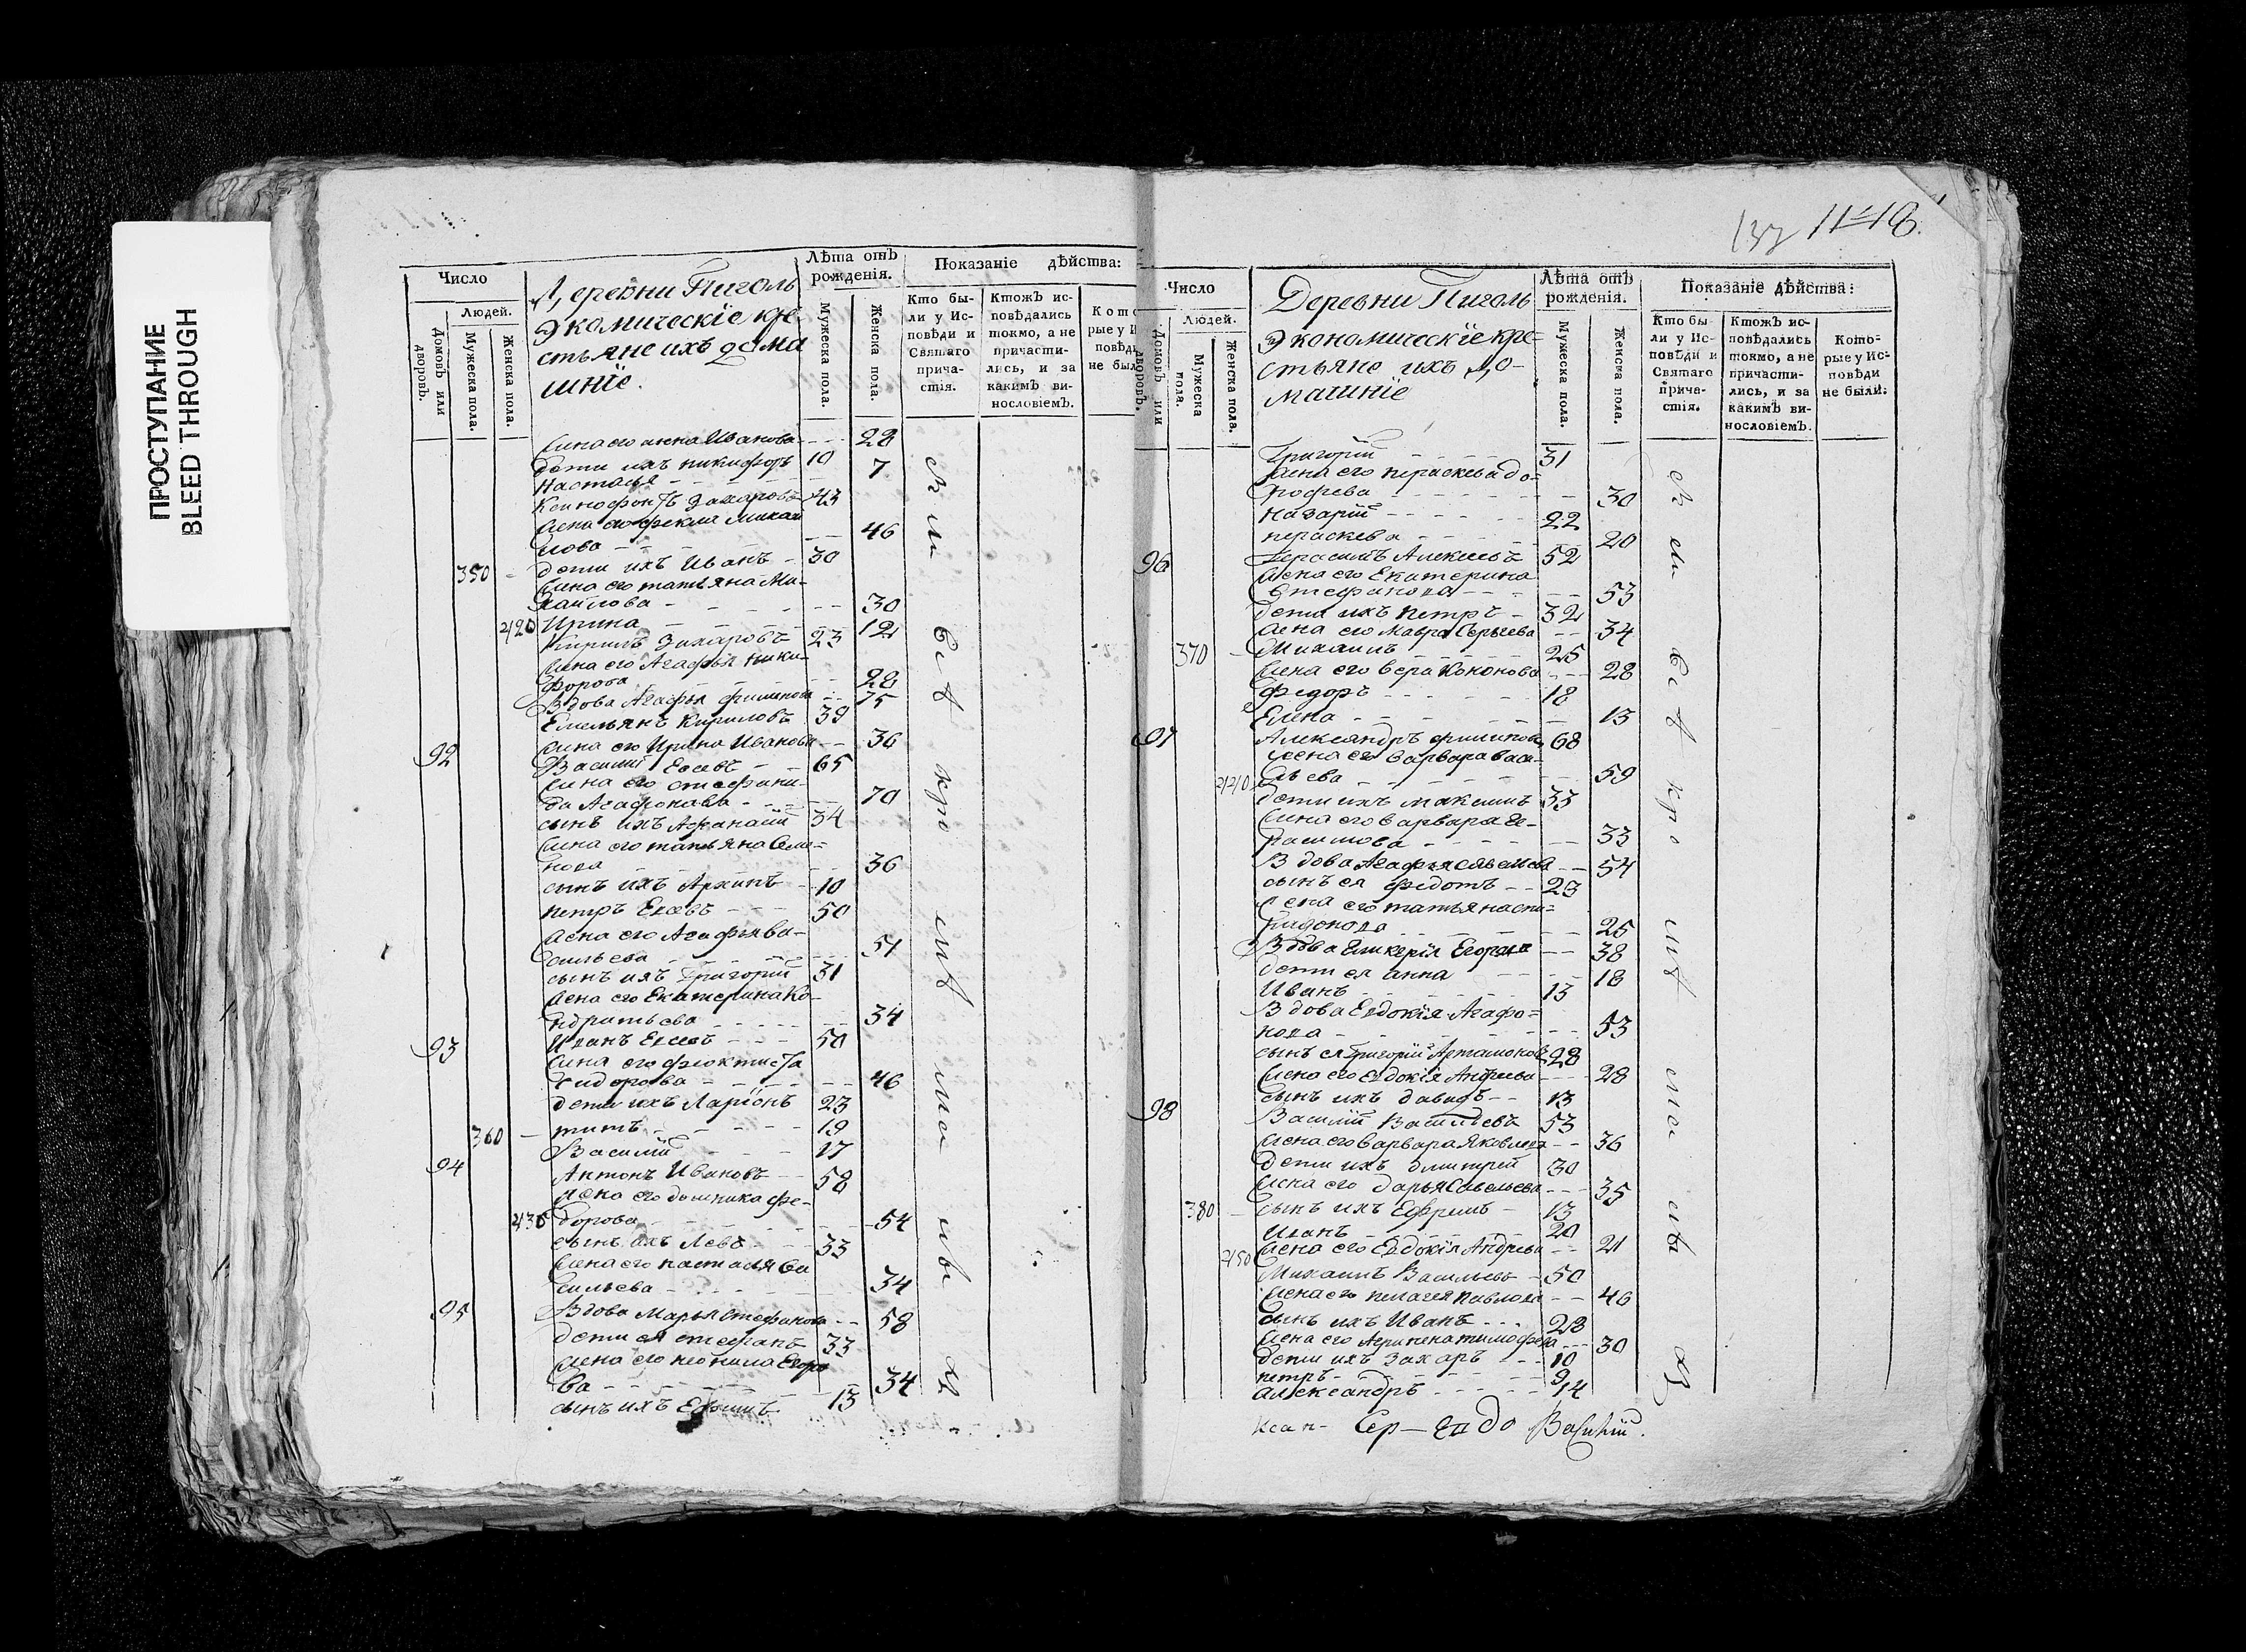 ПРОСТУПАНИЕ
BLEED THROUGH
Число
Людей.
Домовъ или дворовъ.
Мужеска пола.
Женска пола.
Деревни Пиголь
Экомическіе кре
стьяне ихъ дома
шніе.
Лѣта отъ
рожденія.
Мужеска пола.
Женска пола.
Показаніе дѣйства:
Кто бы-
ли у Ис-
повѣди и
Святаго
прича-
стія.
Ктожъ ис-
повѣдались
токмо, а не
причасти-
лись, и за
какимъ ви-
нословіемъ.
Кото
рые у И
повѣди
не был
жена его анна Иванова - - 28
дети ихъ никифоръ 10
Настасья - - 7
Ксинофонтъ Захаровъ 43
жена его фекла Михай
лова - - 46
350 - дети ихъ Иванъ - 30
жена его татьяна Ми-
хайлова - - 30
420 Ирина - - 12
Кирилъ Захаровъ 23
жена его Агафья ники-
форова - - 28
Вдова Агафья филипова - - 75
Емельянъ Кириловъ 39
жена его Ирина Иванова - - 36
92 Василий Евсевъ - - 65
жена его стефани-
да Агафонова - - 70
сынъ ихъ Афанасий 34
жена его татьяна Семи=
нова - - 36
сынъ ихъ Архипъ - 10
петръ Евсевъ - - - 50
жена его Агафья ва-
сильева - - 51
сынъ ихъ Григорий 31
жена его Екатерина Ко-
ндратьева - - 34
93 Иванъ Евсевъ - - - 50
жена его феоктиста
Сидорова - - 46
дети ихъ Ларіонъ 23
360 - титъ - - 19
Василий - - 17
94 Антонъ Ивановъ - - 58
жена его домника фе-
430 дорова - - 54
сынъ ихъ Левъ - - 33
жена его настасья Ва
сильева - - 34
95 Вдова Марья Стефанова - - 58
дети ея стефанъ 33
жена его неонила Егоро
ва - - 34
сынъ ихъ Ефимъ 13
137 11=18.
Число
Людей.
Домовъ или дворовъ.
Мужеска пола.
Женска пола.
Деревни Пиголь
Экономическіе кре-
стьяне ихъ до-
машніе
Лѣта отъ
рожденія.
Мужеска пола.
Женска пола.
Показаніе дѣйства:
Кто бы-
ли у Ис-
повѣди и
Святаго
прича-
стія.
Ктожъ ис-
повѣдались
токмо, а не
причасти-
лись, и за
какимъ ви-
нословіемъ.
Кото-
рые у Ис-
повѣди
не были.
Григорий - - 31
жена его пераскева до-
рофева - - 30
Назарий - - 22
пераскева - - 20
96 Герасимъ Алексевъ 52
жена его Екатерина
Стефанова - - 53
дети ихъ петръ - 32
жена его Мавра Сергеева - - 34
370 - Михаилъ - - 25
жена его вера Кононова - - 28
федоръ - - 18
Елена - - 13
97 Александръ филиповъ 68
жена его варвара васи-
440 льева - - 59
дети ихъ максимъ 33
жена его варвара Ге-
расимова - - 33
Вдова Агафья савельева - - 54
сынъ ея федотъ - - 23
жена его татьяна спи=
ридонова - - 25
Вдова Гликерія Егорова - - 38
дети ея анна - - 18
Иванъ - - 13
Вдова Евдокія Агафо=
нова - - 53
сынъ ея Григорий Артамоновъ 28
жена его Евдокія Андреева - - 28
сынъ ихъ давидъ - - 13
98 Василий Васильевъ 53
жена его варвара Яковлева - - 36
дети ихъ дмитрей 30
жена его дарья Савельева - - 35
380 - сынъ ихъ Ефремъ - 13
Иванъ - - 20
450 жена его Евдокія Андреева - - 21
Михаилъ Васильевъ - 50
жена его пелагея павлова - - 46
сынъ ихъ Иванъ - - - 28
жена его Агрипена тимофева - - 30
дети ихъ Захаръ - - 10
петръ - - 9
александръ - - 14
Сер— до Василий.